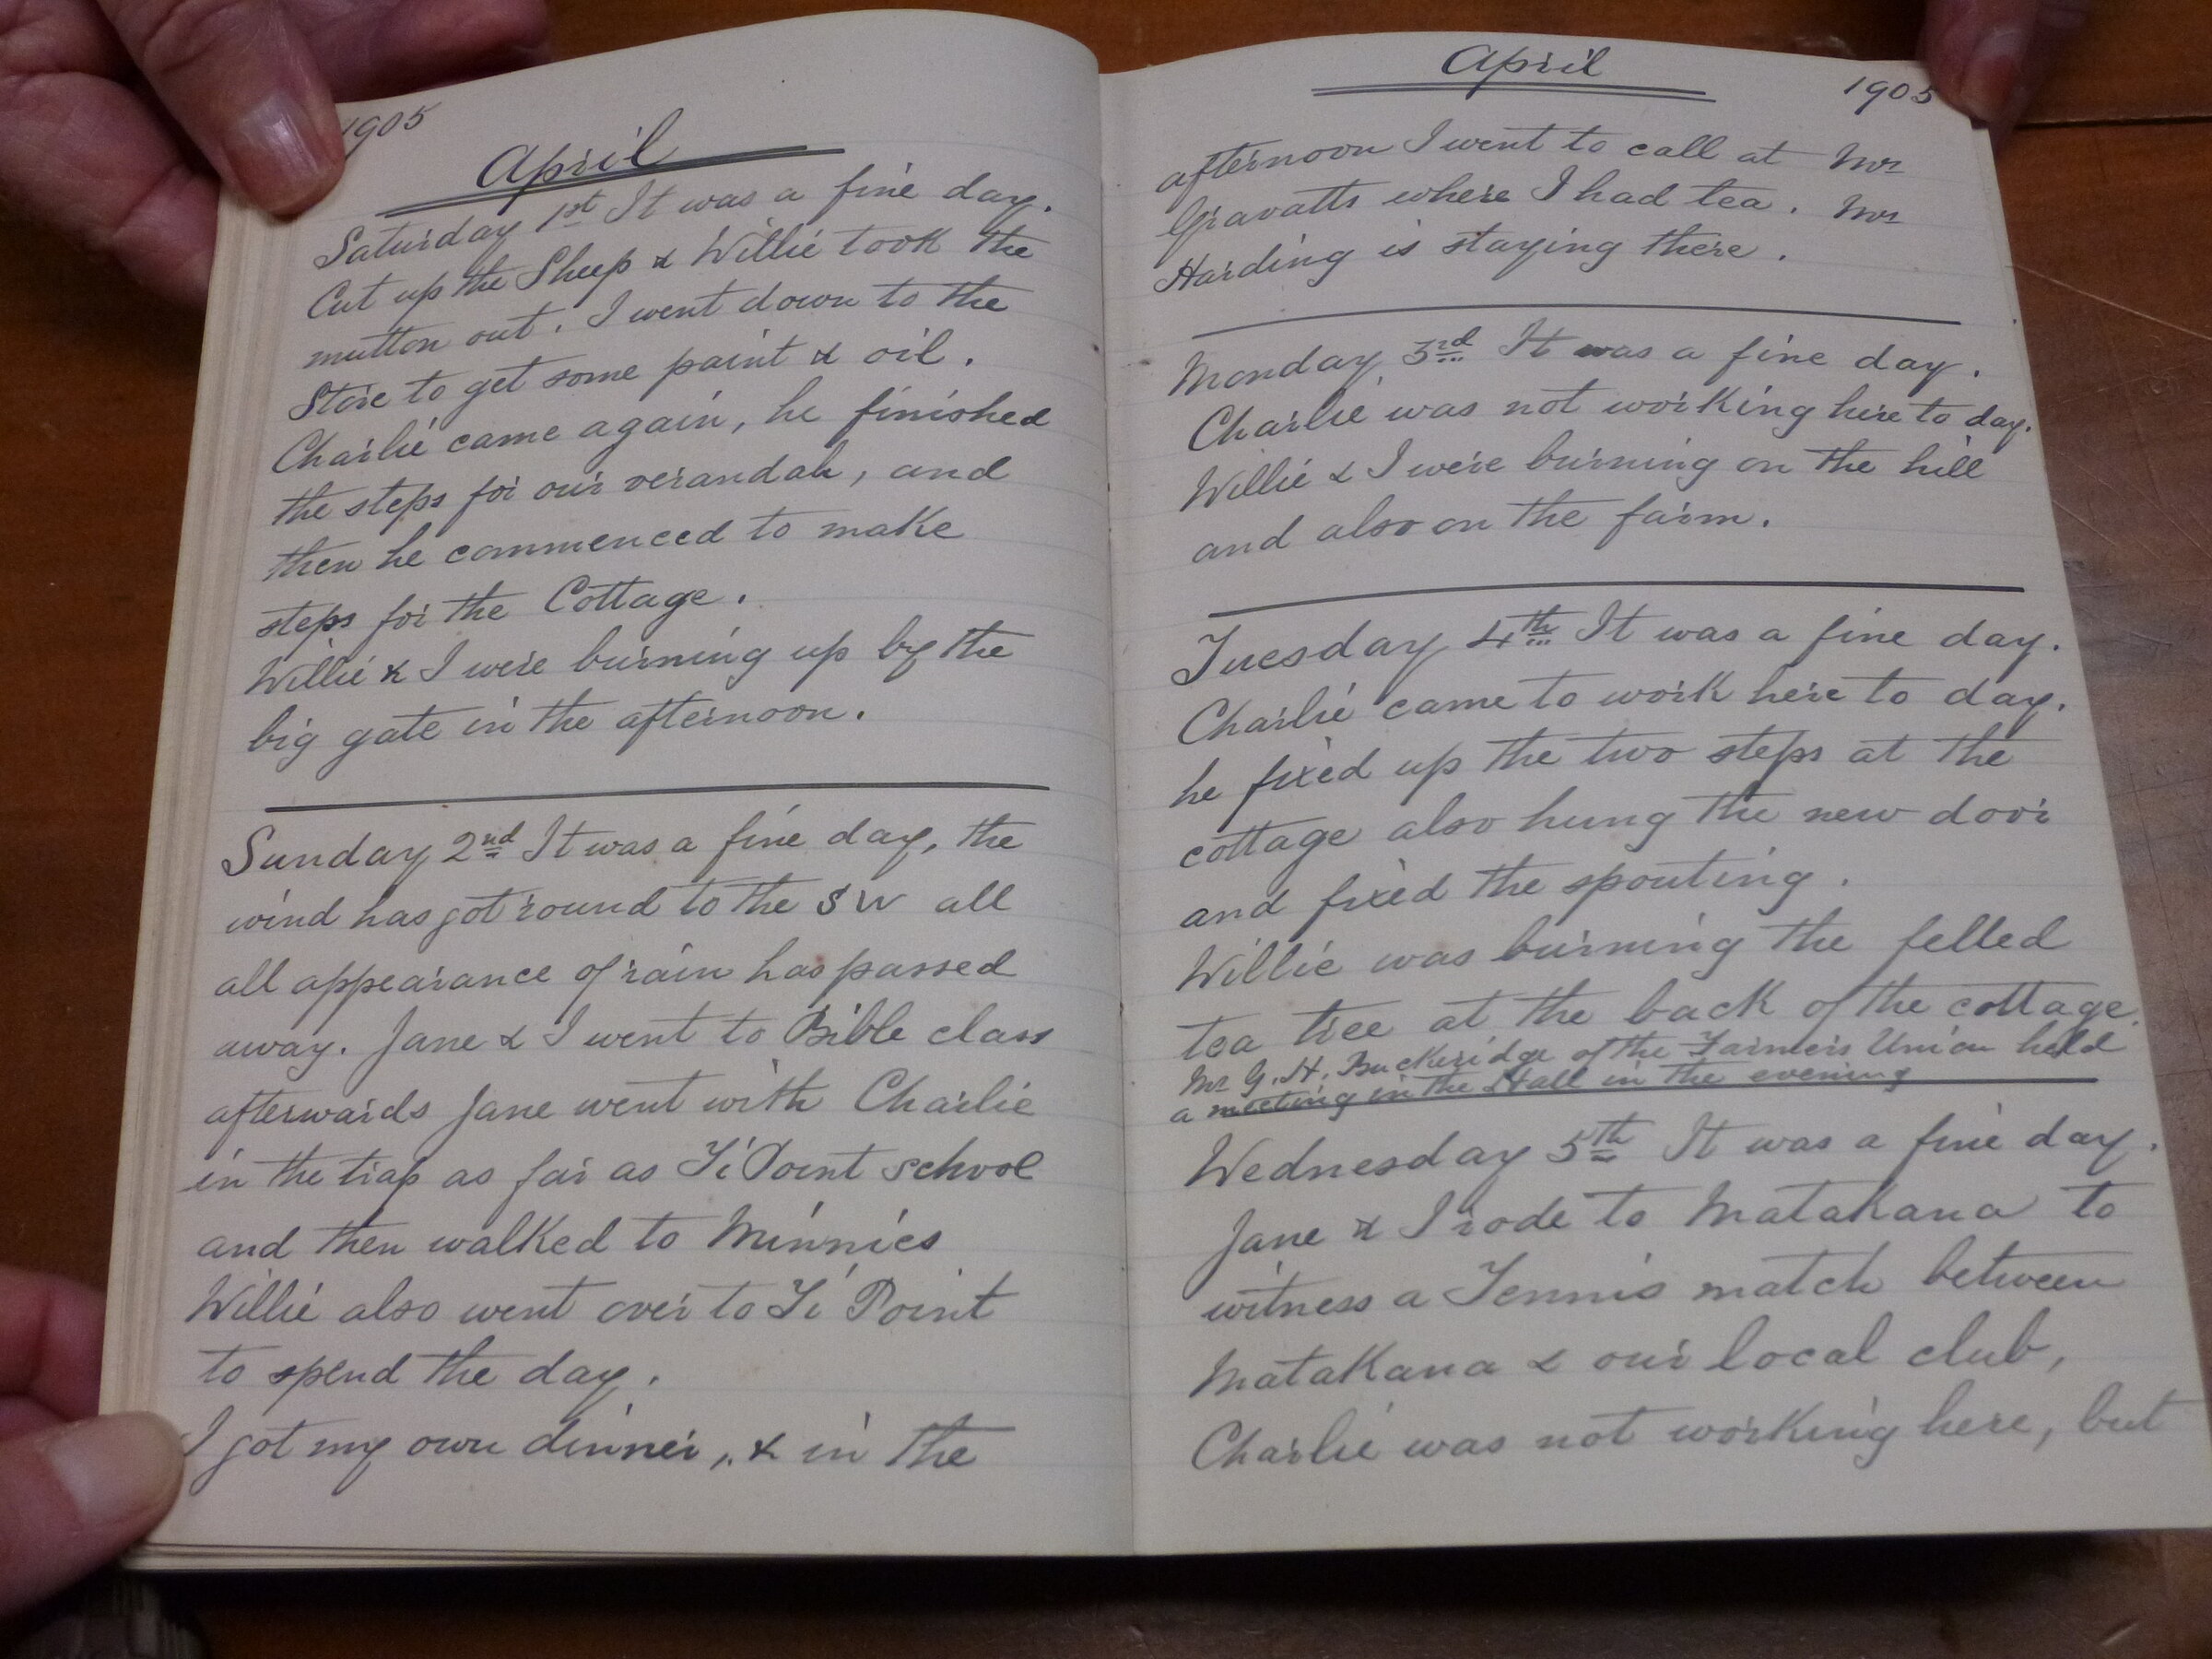 1905
April
Saturday 1st It was a fine day.
Cut up the Sheep & Willie took the
mutton out. I went down to the
Store to get some paint & oil.
Charlie came again, he finished
the steps for our verandah, and
then he commenced to make
steps for the Cottage.
Willie & I were burning up by the
big gate in the afternoon.
Sunday 2nd It was a fine day, the
wind has got round to the S W all
all appearance of rain has passed
away. Jane & I went to Bible class
afterwards Jane went with Charlie
in the trap as far as Ti Point school
and then walked to Minnies
Willie also went over to Ti Point
to spend the day.
I got my own dinner, & in the
April
1905
afternoon I went to call at Mr
Gravatts where I had tea. Mrs
Harding is staying there.
Monday 3rd It was a fine day.
Charlie was not working here to day.
Willie & I were burning on the hill
and also on the farm.
Tuesday 4th It was a fine day.
Charlie came to work here to day.
he fixed up the two steps at the
cottage also hung the new door
and fixed the spouting.
Willie was burning the felled
tea tree at the back of the cottage.
Mr G. H. Buckeridge of the Farmers Union held
a meeting in the Hall in the evening
Wednesday 5th It was a fine day.
Jane & I rode to Matakana to
witness a Tennis match between
Matakana & our local club,
Charlie was not working here, but